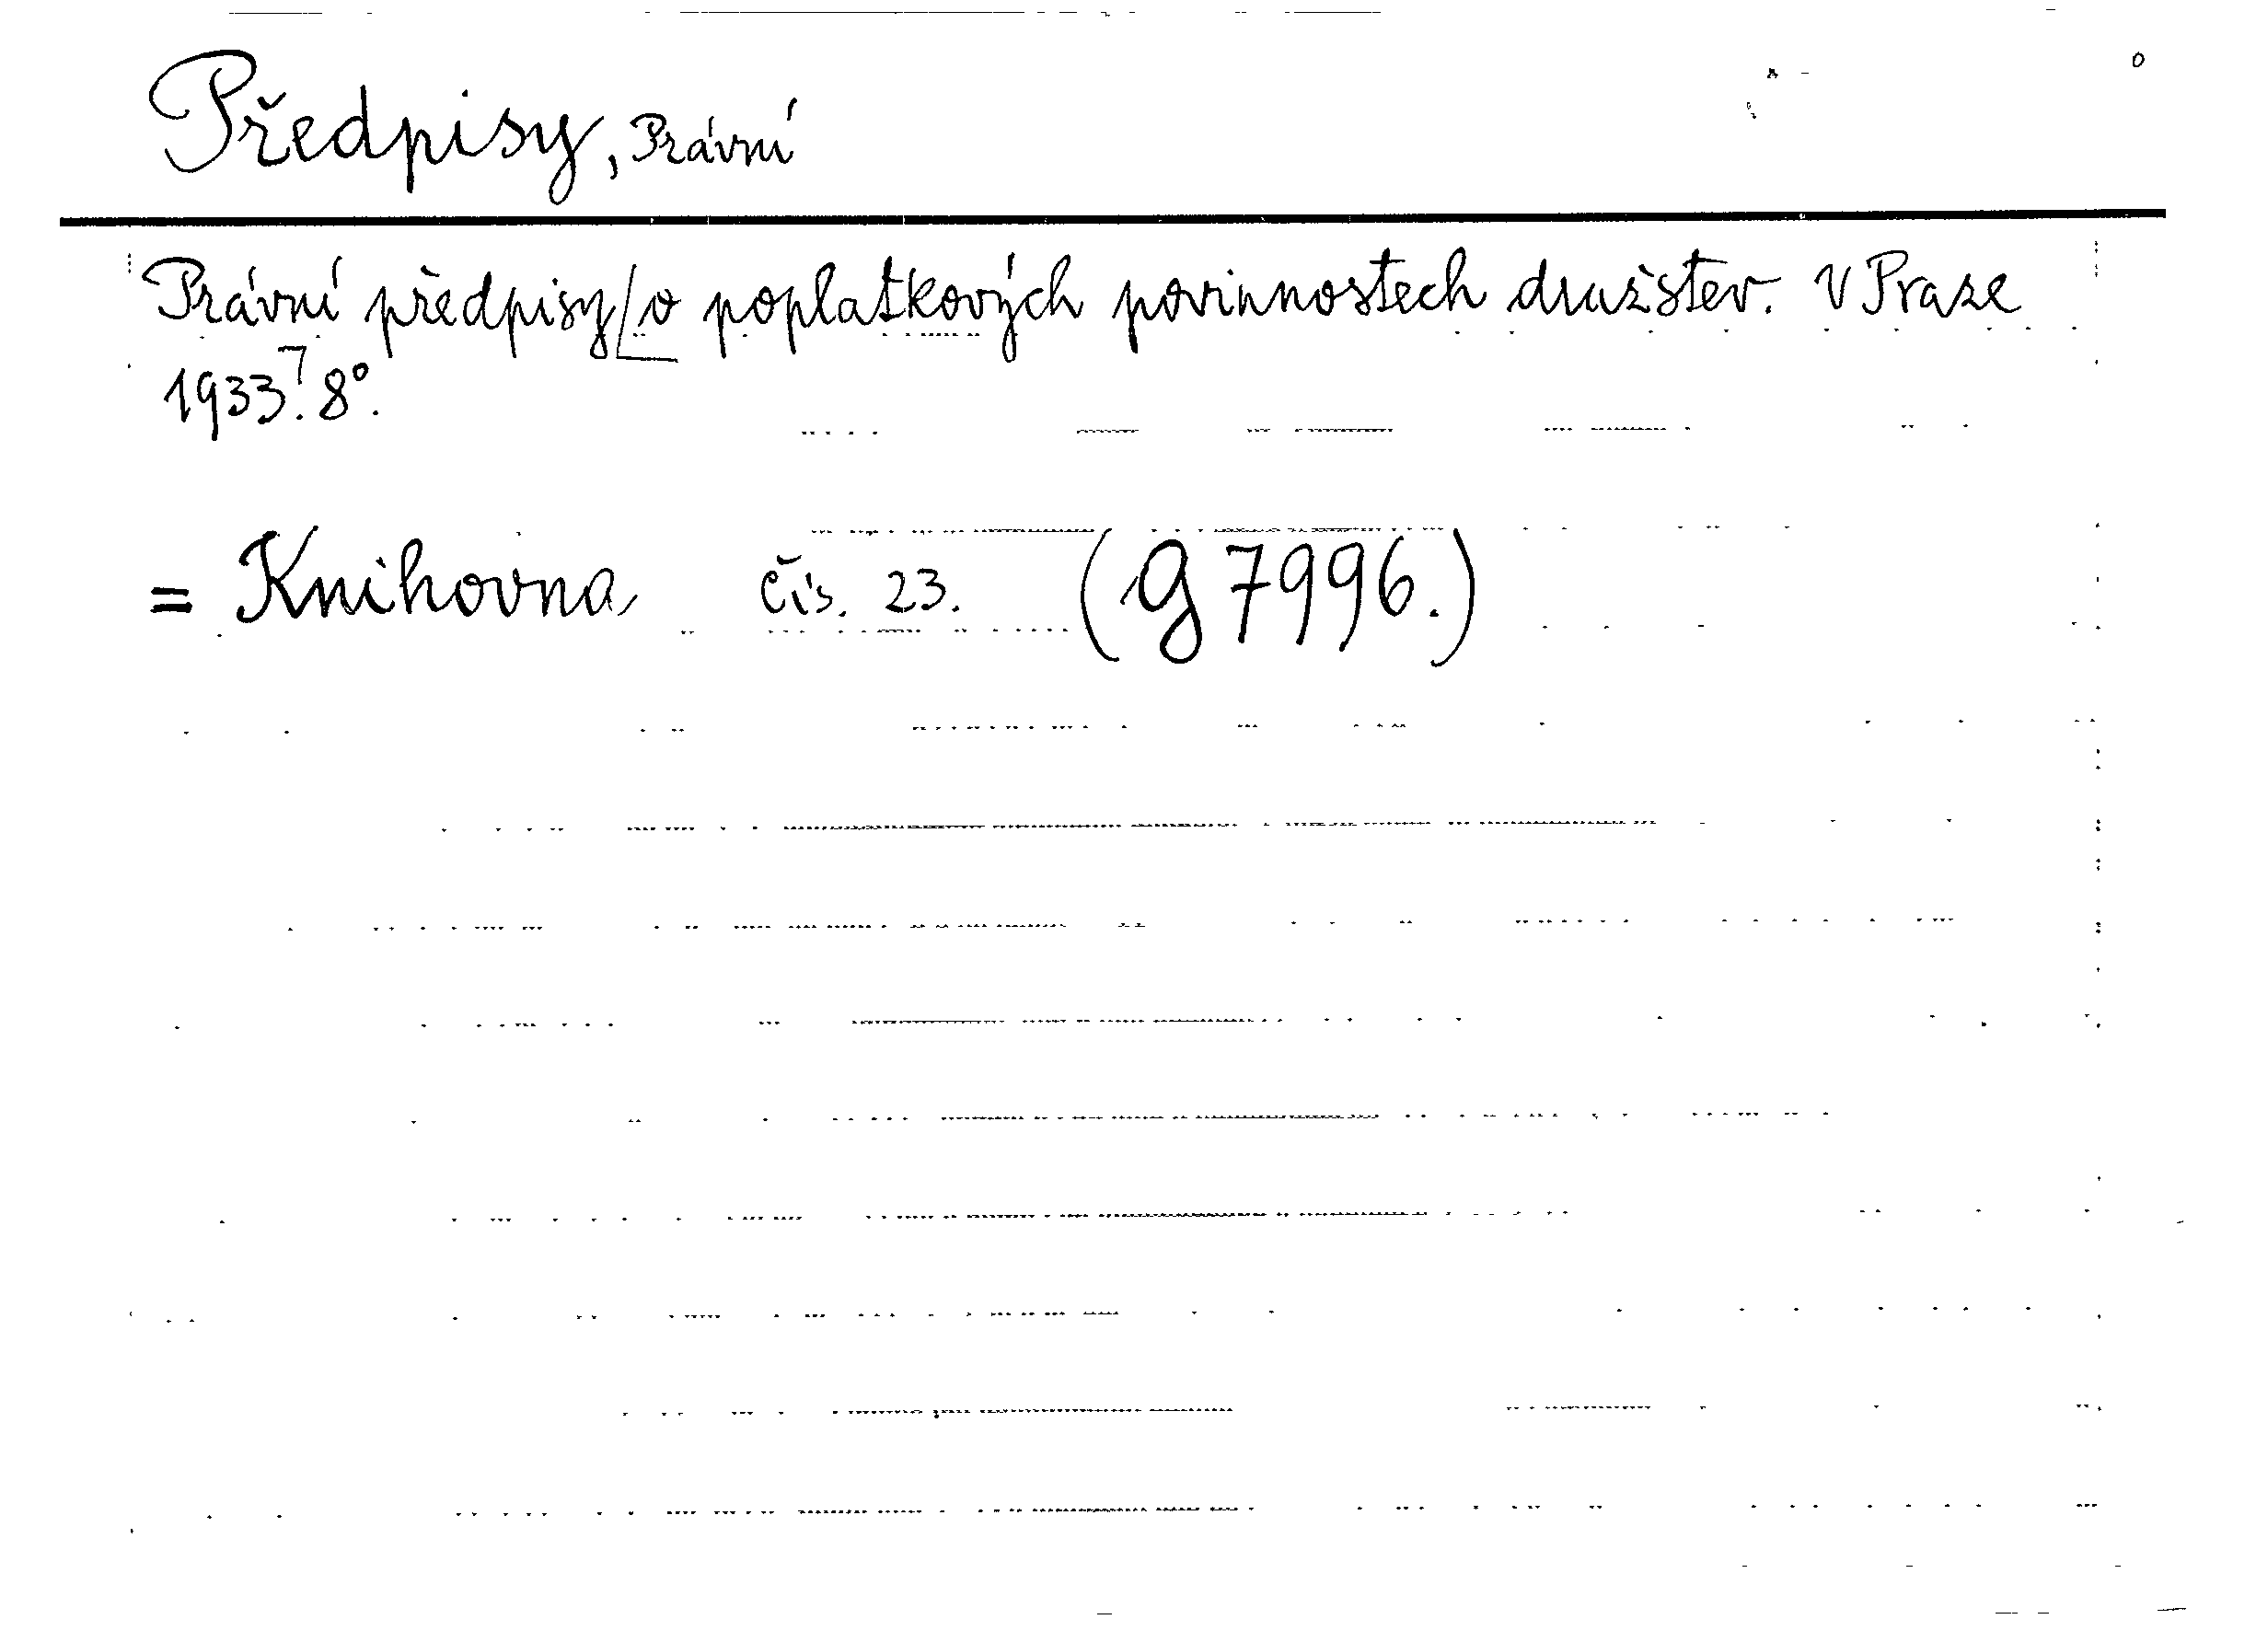 Předpisy, Právní
Právní předpisy o poplatkových povinnostech družstev. V Praze
1933. 8°.
= Knihovna čís. 23. (G 7996.)